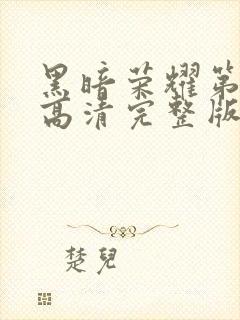 黑暗荣耀第
高清完整版
楚兒